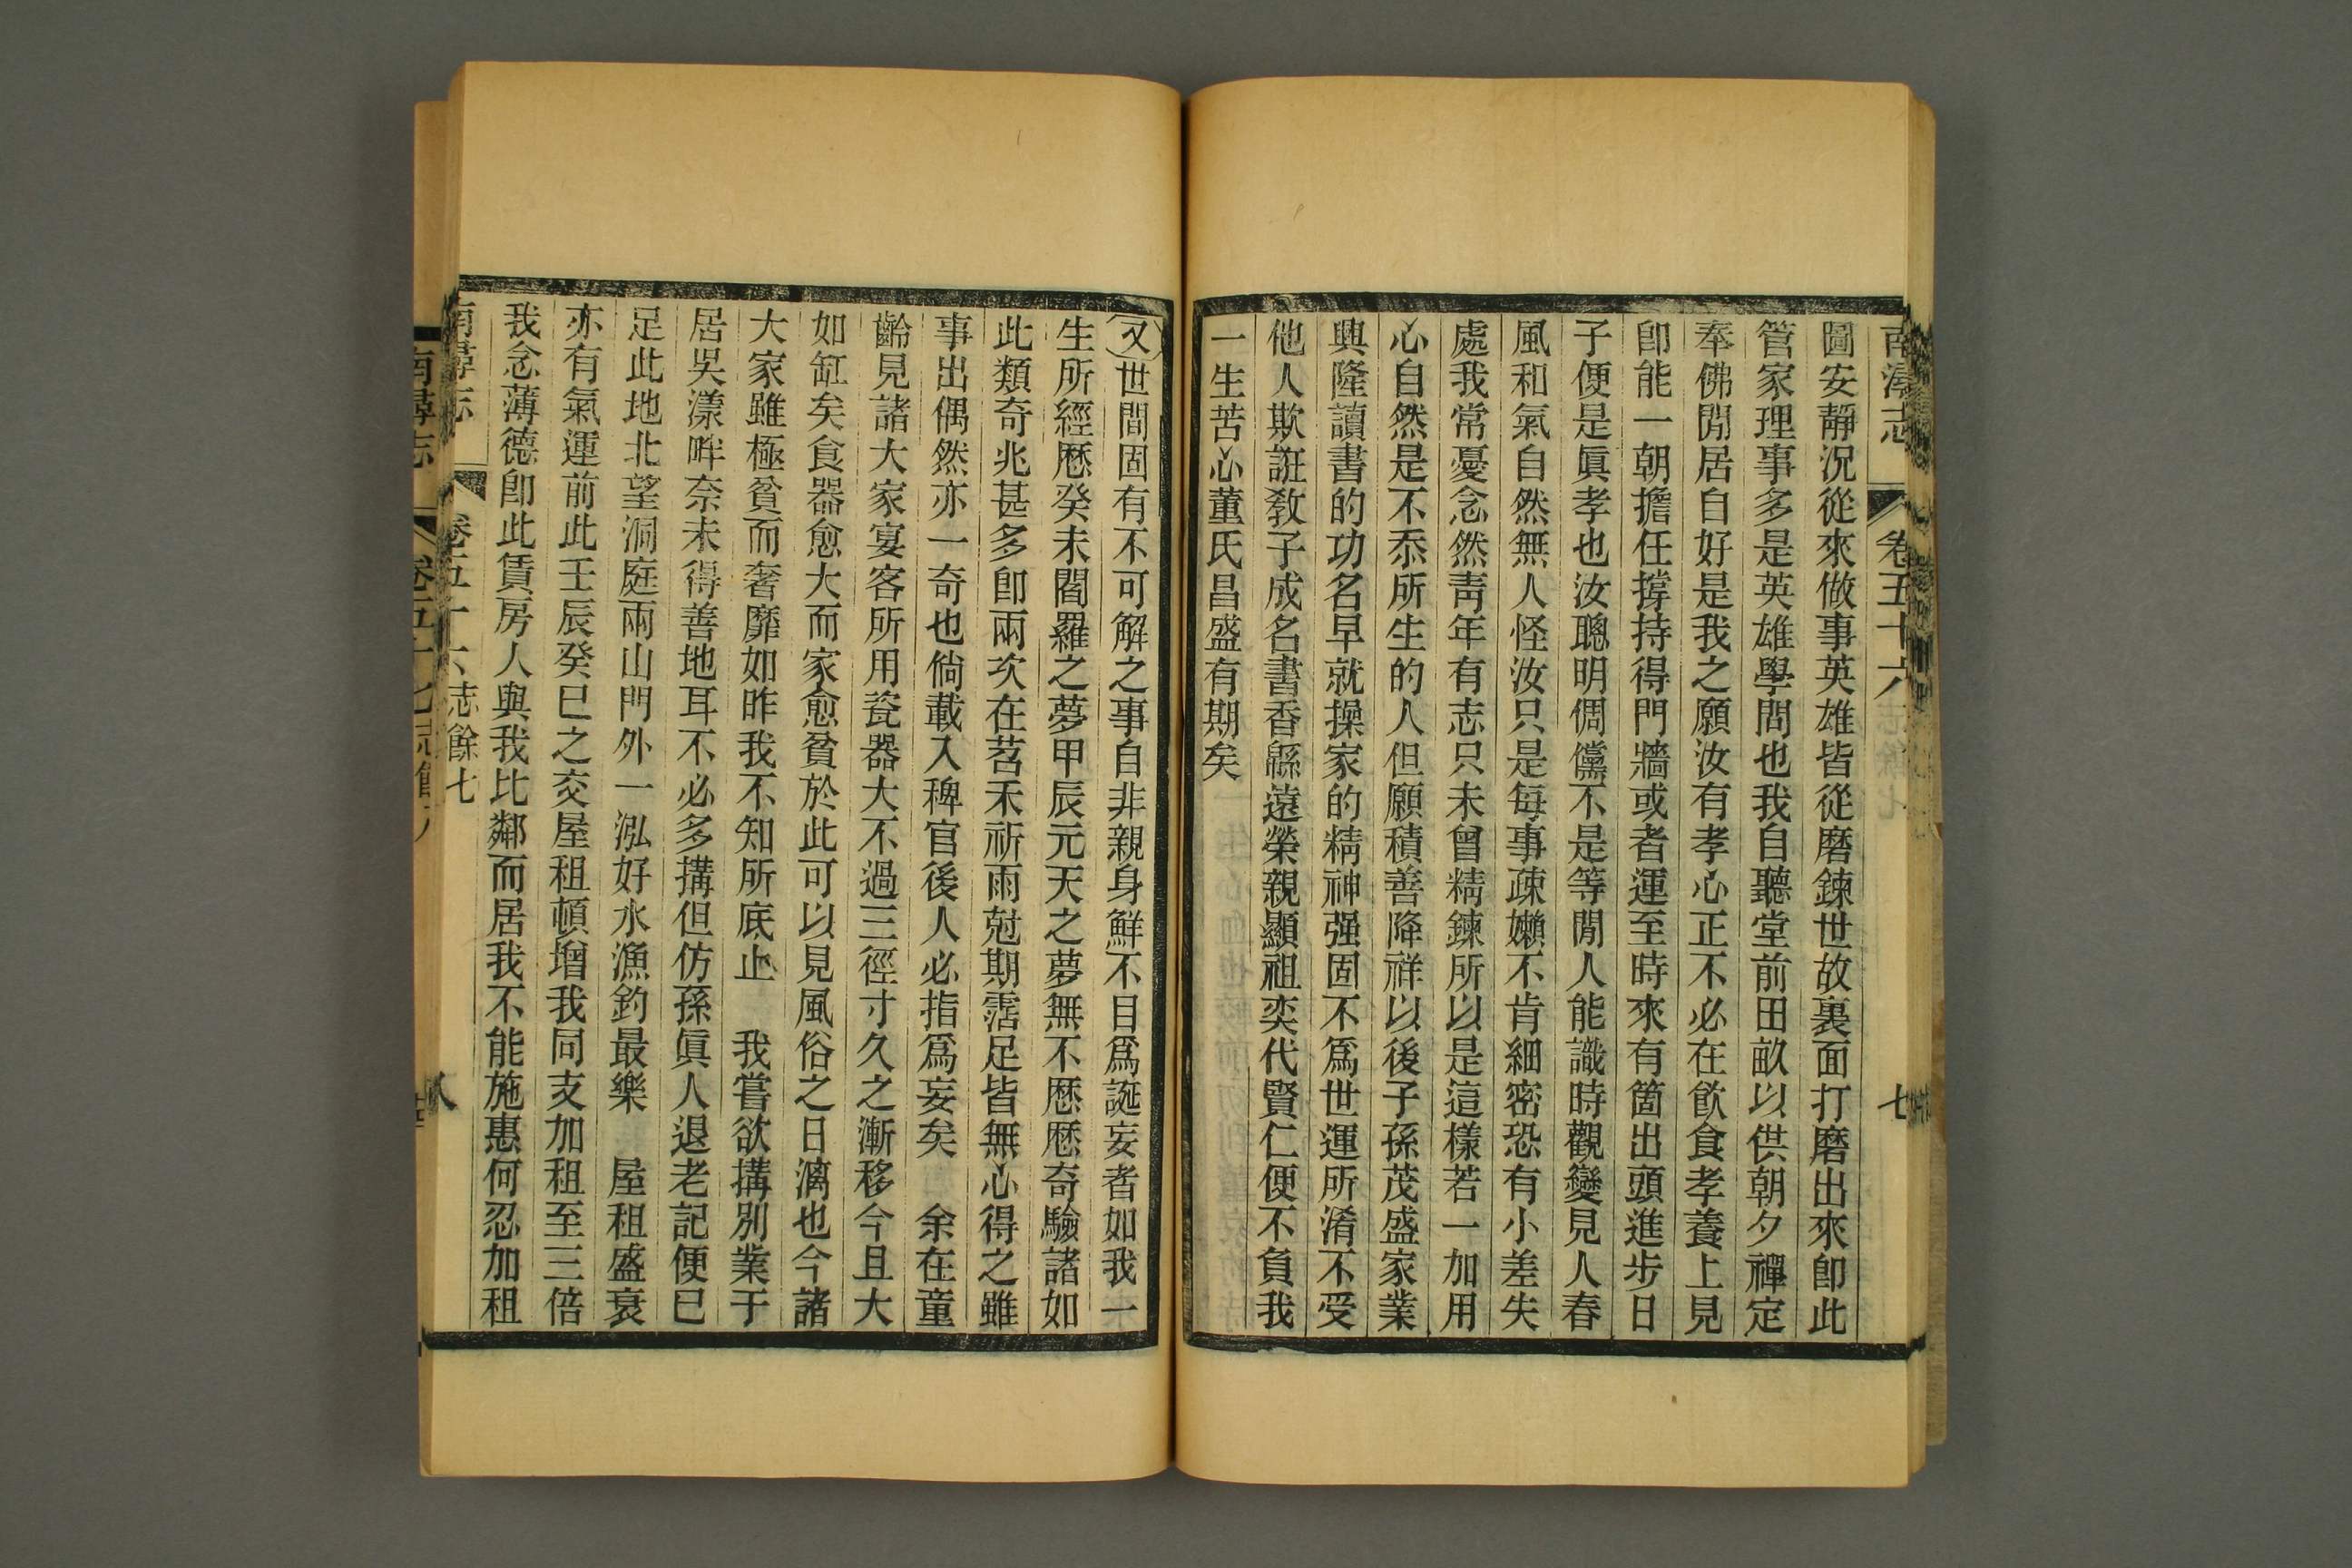 南潯志 卷五十六 七
圖安靜況從來做事英雄皆從磨鍊世故裏面打磨出來卽此
管家理事多是英雄學問也我自聽堂前田畝以供朝夕禪定
奉佛閒居自好是我之願汝有孝心正不必在飮食孝養上見
卽能一朝擔任撐持得門牆或者運至時來有箇出頭進步日
子便是眞孝也汝聰明倜儻不是等閒人能識時觀變見人春
風和氣自然無人怪汝只是每事疎嬾不肯細密恐有小差失
處我常憂念然靑年有志只未曾精鍊所以是這樣若一加用
心自然是不忝所生的人但願積善降祥以後子孫茂盛家業
興隆讀書的功名早就操家的精神强固不爲世運所淆不受
他人欺誑敎子成名書香緜遠榮親顯祖奕代賢仁便不負我
一生苦心董氏昌盛有期矣
又世間固有不可解之事自非親身鮮不目爲誕妄者如我一
生所經歷癸未閻羅之夢甲辰元天之夢無不歷歷奇驗諸如
此類奇兆甚多卽兩次在苕禾祈雨尅期霑足皆無心得之雖
事出偶然亦一奇也倘載入稗官後人必指爲妄矣 余在童
齡見諸大家宴客所用瓷器大不過三徑寸久之漸移今且大
如缸矣食器愈大而家愈貧於此可以見風俗之日漓也今諸
大家雖極貧而奢靡如昨我不知所底止 我嘗欲搆別業于
居吳漾畔奈未得善地耳不必多搆但仿孫眞人退老記便已
足此地北望洞庭兩山門外一泓好水漁釣最樂 屋租盛衰
亦有氣運前此壬辰癸巳之交屋租頓增我同支加租至三倍
我念薄德卽此賃房人與我比鄰而居我不能施惠何忍加租
南潯志 卷五十六 志餘七 八
南潯志 卷五十七 志餘八